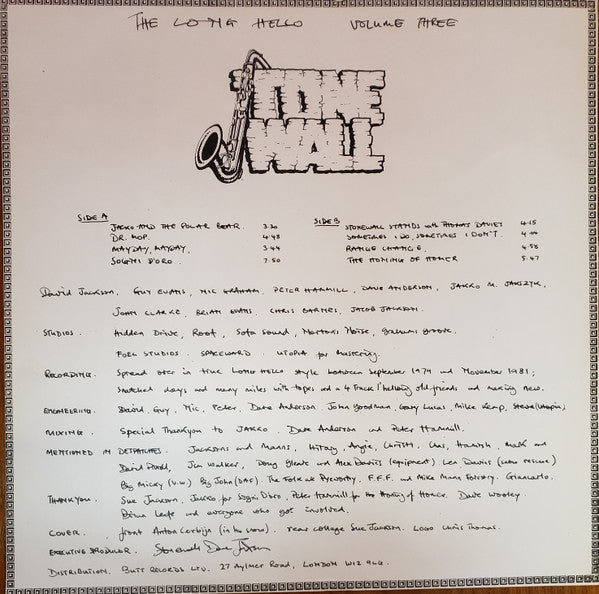 THE LONG HELLO VOLUME THREE
STONE
WALL
SIDE A
JAKKO AND THE POLAR BEAR. 3.30
DR. HOP. 4.48
MAYDAY, MAYDAY. 3.44
SOGNI D'ORO. 7.50
SIDE B
STONEWALL STANDS with THOMAS DAVIES 4.15
SOMETIMES I DO, SOMETIMES I DON'T.
RANGE CHANGE. 4.58
THE HOMING OF HOMER 5.47
David Jackson, GUY EVANS, NIC GRAHAM, PETER HAMMILL, DAVE ANDERSON, JAKKO M. JAKSZYK,
JOHN CLARKE, BRIAN EVANS, CHRIS BARNES, JACOB JACKSON.
STUDIOS. Hidden Drive, Roof, Sofa Sound,
FOEL STUDIOS. SPACEWARD. UTOPIA for Mastering.
RECORDING. Spread over in true LONG HELLO style between September 1979 and November 1981;
Snatched days and many miles with tapes and a 4 Track! helping old friends and making new.
ENGINEERING. David, Guy, Nic, Peter, Dave Anderson John Goodman, Gary Lucas, Mike Kemp, Steve (Utopia);
MIXING. Special Thankyou to JAKKO, Dave Anderson and Peter Hammill.
MENTIONED IN DESPATCHES. Jacksons and Manns, Angie, Hamish, and
David Jim Walker, Doug and Alex Davies (equipment) Les Davies (snow rescue)
Big Mickey (V.W.) Big John (DAF) The Folk at F.F.F. and Mike Mann Giancarlo.
THANKYOU. Sue Jackson, Jakko for Sogni D'oro, Peter Hammill for the Homing of Homer. Dave Wooley
Brian Leafe and everyone who got involved.
COVER. front Anton Corbijn (in his snow). rear collage Sue Jackson. LOGO Chris Thomas.
EXECUTIVE PRODUCER.
DISTRIBUTION. BUTT RECORDS LTD. 27 Aylmer Road, LONDON W12 9LG.